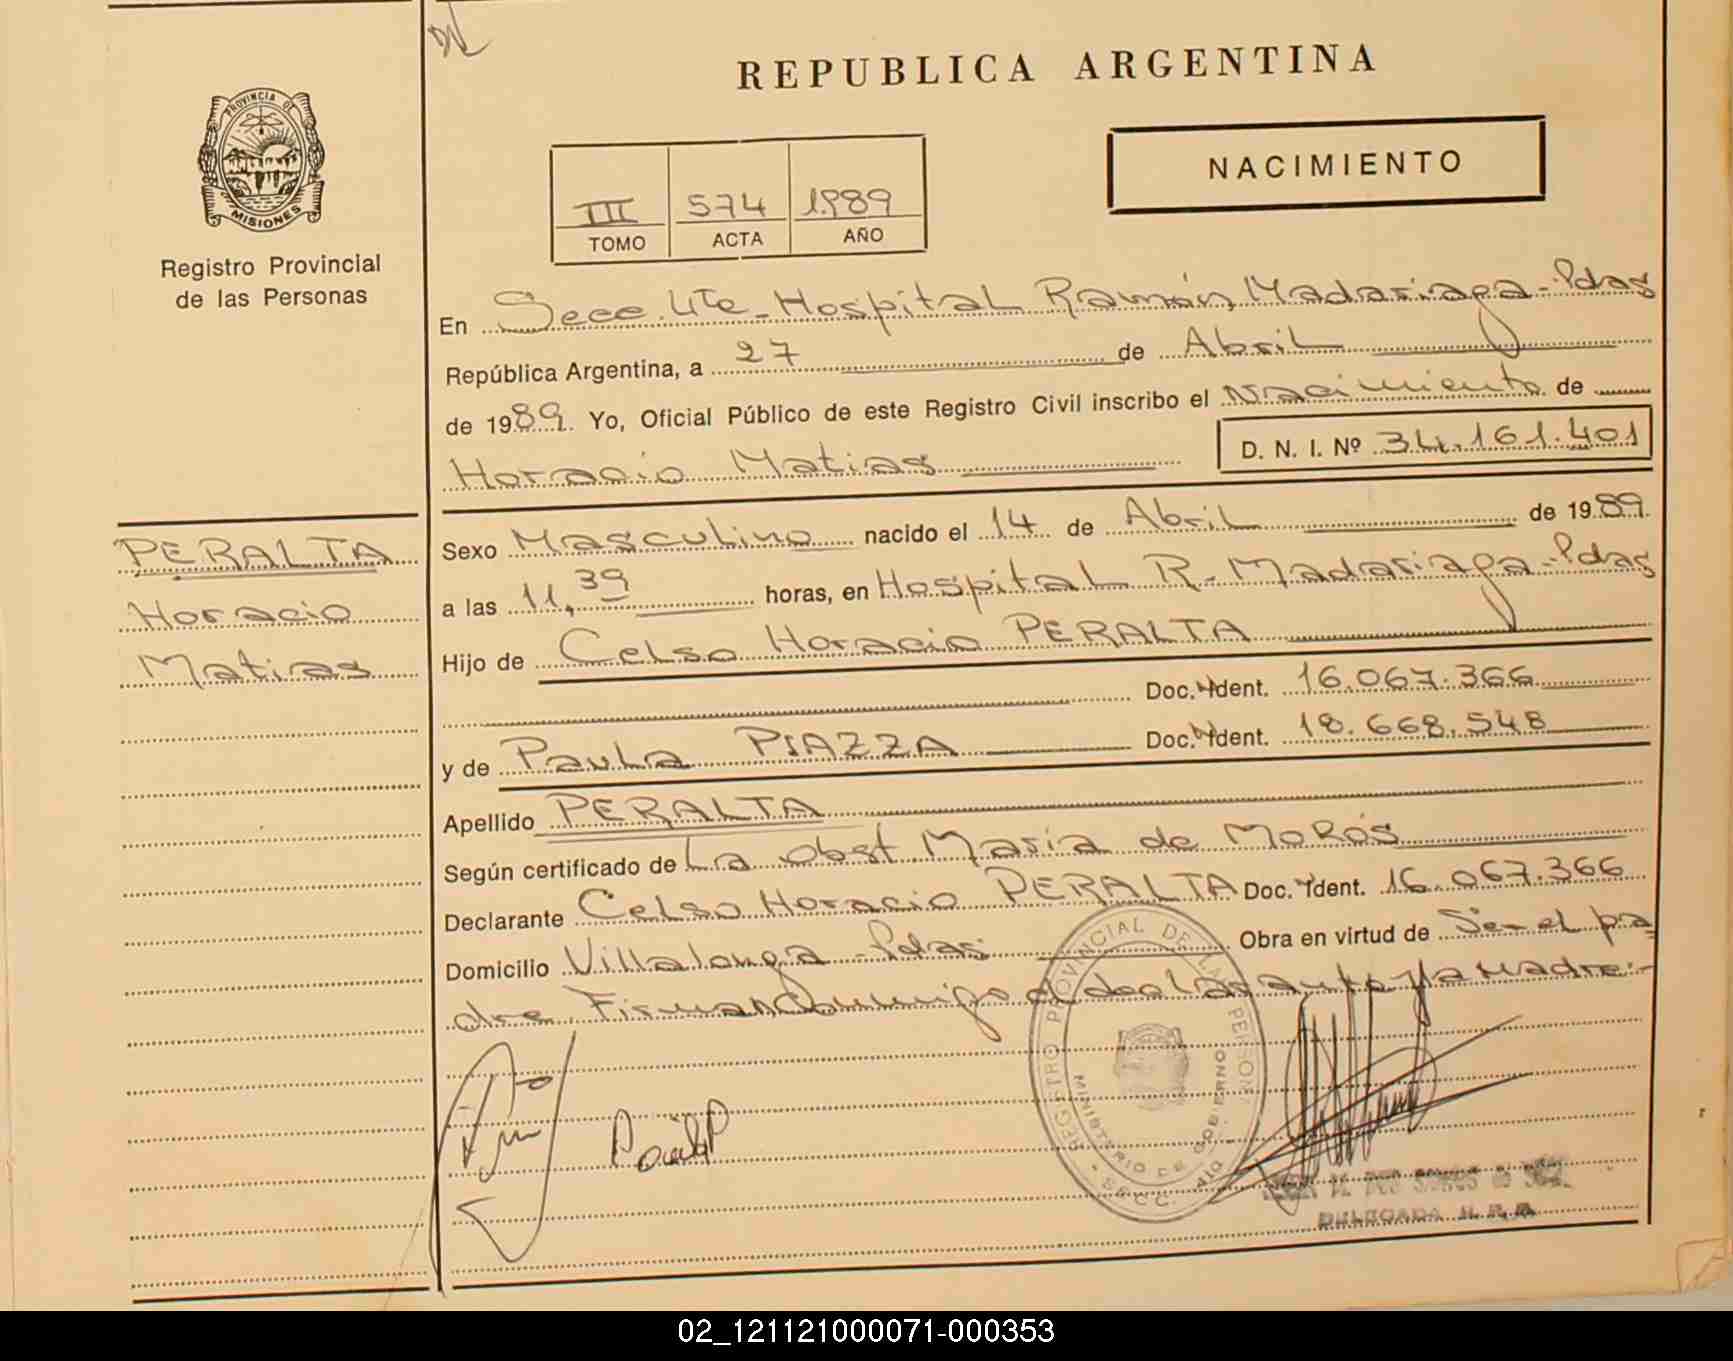 REPUBLICA ARGENTINA
NACIMIENTO
III 574 1989
TOMO ACTA AÑO
PROVINCIA DE
MISIONES
Registro Provincial
de las Personas
En Secc. 4te. Hospital Ramón Madariaga - Pdas
República Argentina, a 27 de Abril
de 1989. Yo, Oficial Público de este Registro Civil inscribo el Nacimiento de
Horacio Matias D. N. I. Nº 34.161.401
PERALTA
Horacio
Matias
Sexo Masculino nacido el 14 de Abril de 1989.
a las 11,39 horas, en Hospital R. Madariaga - Pdas
Hijo de Celso Horacio PERALTA
Doc. Ident. 16.067.366
y de Paula PIAZZA Doc. Ident. 18.668.548
Apellido PERALTA
Según certificado de La Obst. María de Morós
Declarante Celso Horacio PERALTA Doc. Ident. 16.067.366
Domicilio Villalonga - Pdas. Obra en virtud de Ser el pa
dre. Firman conmigo el declarante y la madre.-
REGISTRO PROVINCIAL DE LAS PERSON
MINISTERIO DE GOBIERNO
DELEGADA H. R. M.
02_121121000071-000353